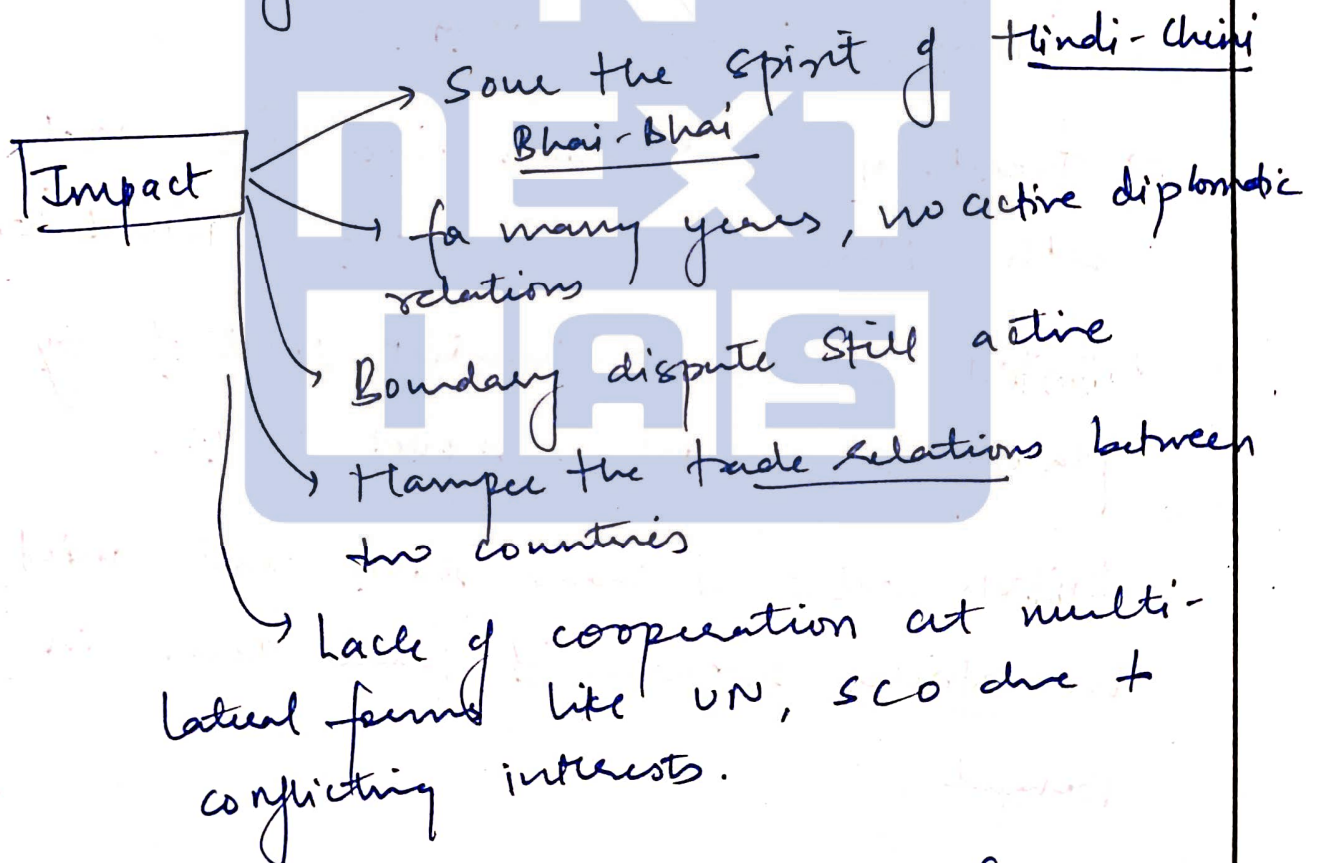 Sour the spirit of Hindi-Chini
Bhai-Bhai
Impact
for many years, no active diplomatic
relations
Boundary dispute still active
Hamper the trade relations between
two countries
Lack of cooperation at multi-
lateral forums like UN, SCO due to
conflicting interests.
N
NEXT
IAS